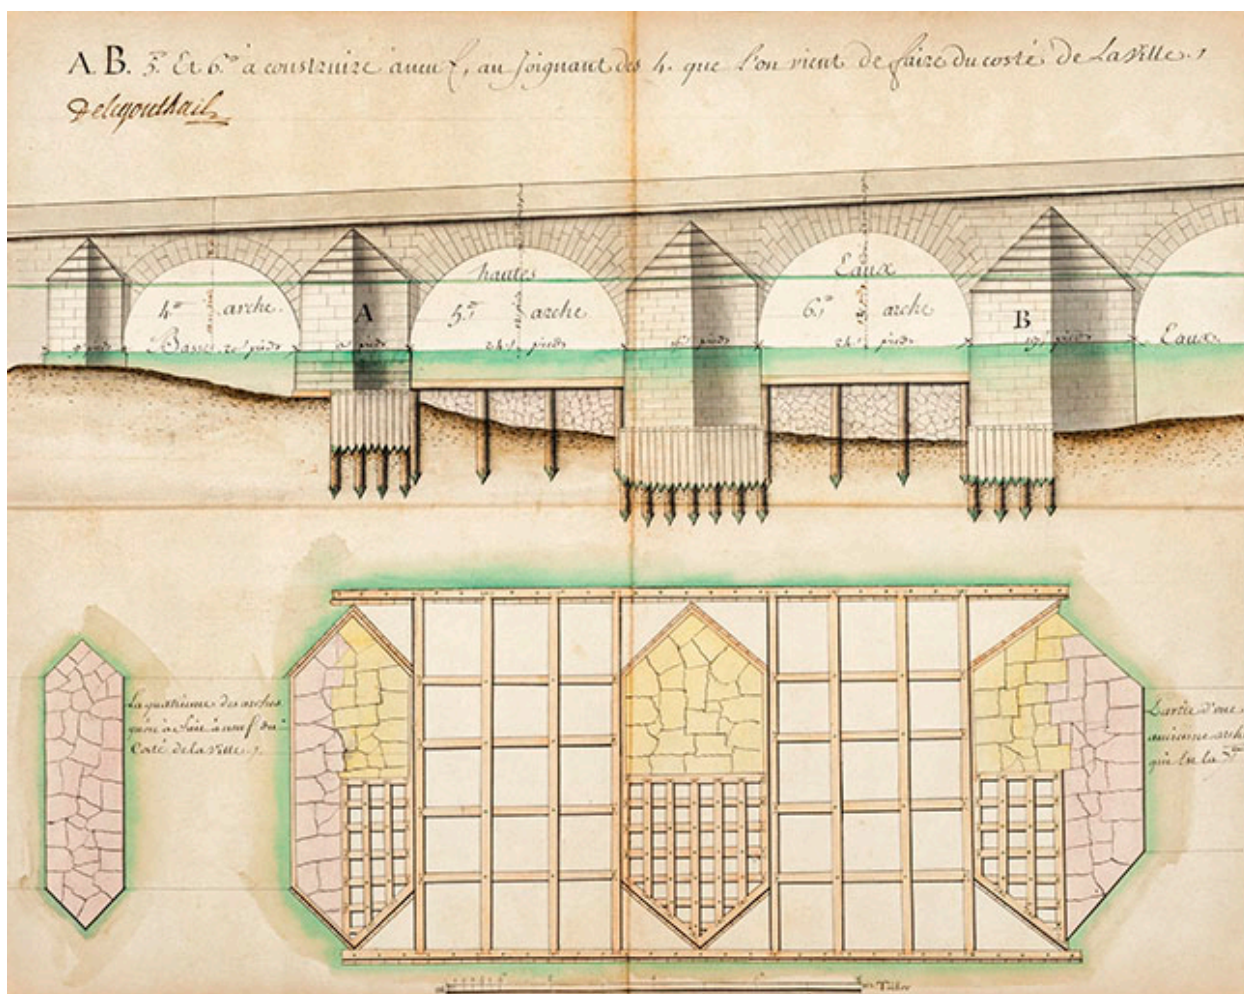 A. B. 5.e Et 6.e à construire à neuf, au joignant des 4. que l'on vient de faire du costé de La Ville.
hautes Eaux
4.e arche.
A
5.e arche
6.e arche
B
Basses
pieds
pieds
24. pieds
pieds
24. pieds
19. pieds
Eaux.
La quatrieme des arches
à faire à neuf du
Coté de la Ville.
Partie d'une
ancienne arche
qui est la 7.e